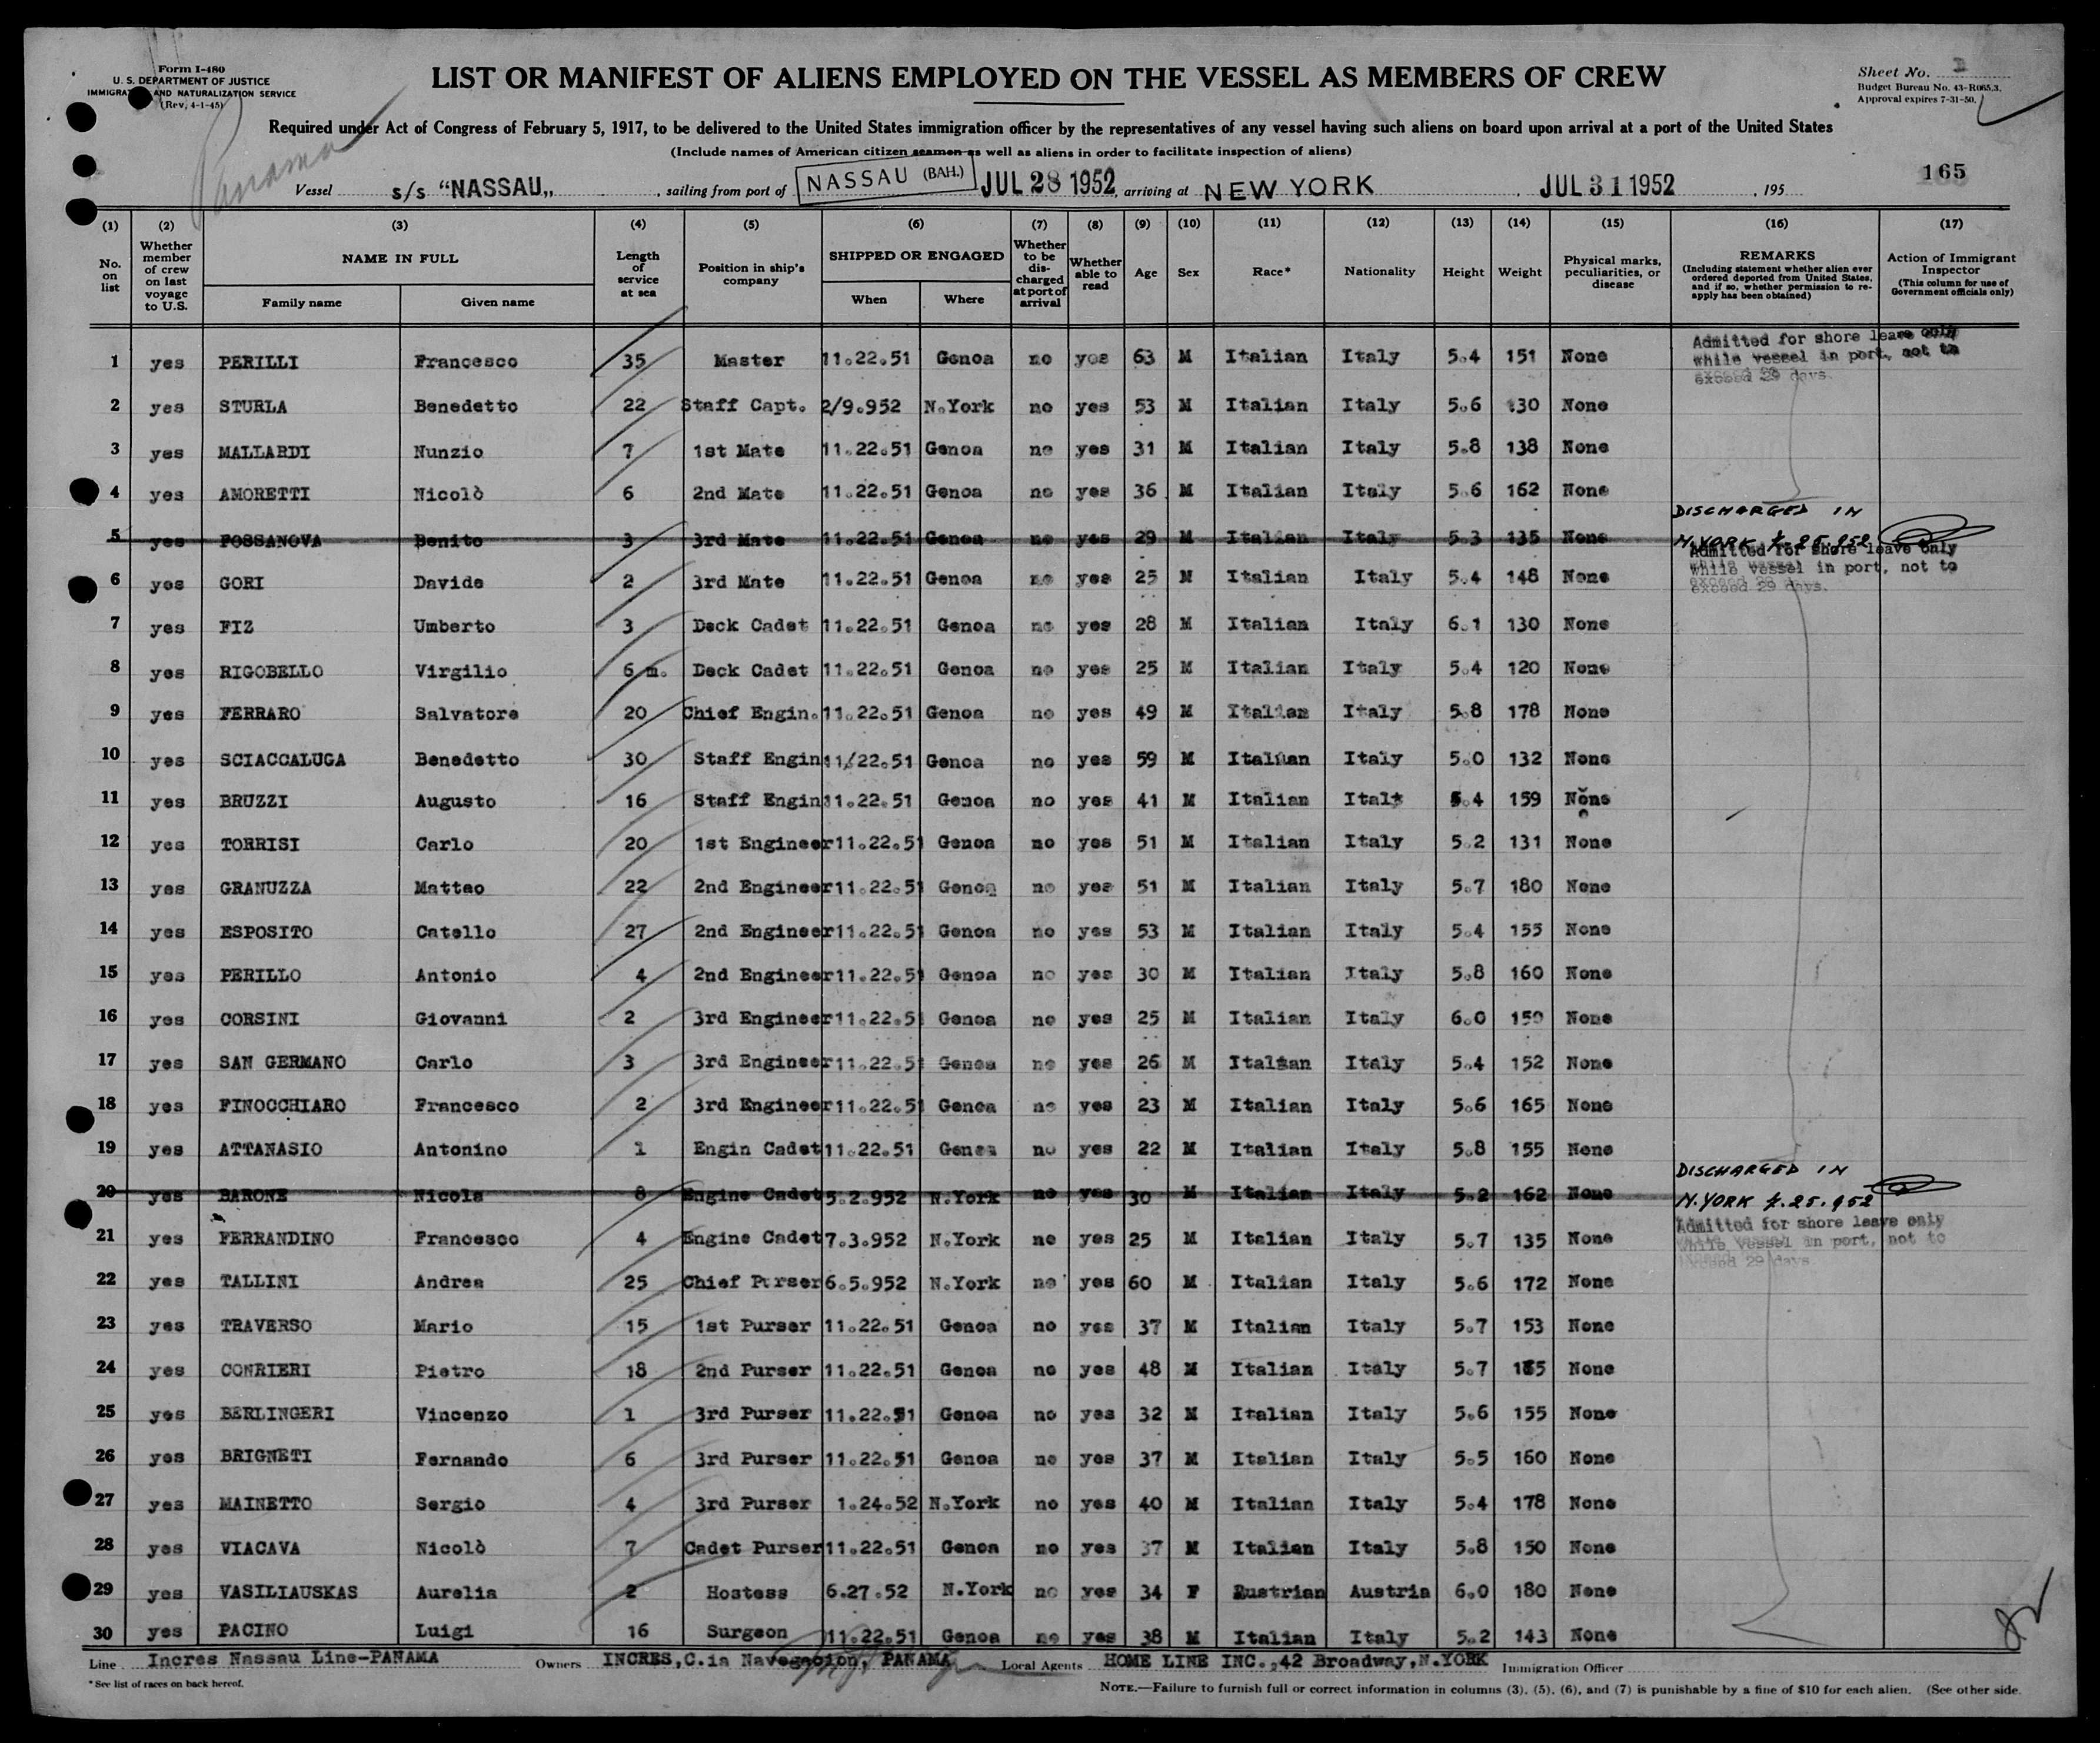 Form I-480
U. S. DEPARTMENT OF JUSTICE
IMMIGRATION AND NATURALIZATION SERVICE
(Rev. 4-1-45)
Panama
LIST OR MANIFEST OF ALIENS EMPLOYED ON THE VESSEL AS MEMBERS OF CREW
Sheet No.
Budget Bureau No. 43-R065.3.
Approval expires 7-31-50.
Required under Act of Congress of February 5, 1917, to be delivered to the United States immigration officer by the representatives of any vessel having such aliens on board upon arrival at a port of the United States
(Include names of American citizen seamen as well as aliens in order to facilitate inspection of aliens)
165
Vessel s/s "NASSAU,, , sailing from port of NASSAU (BAH.) JUL 28 1952, arriving at NEW YORK, JUL 31 1952, 195
(1) No. on list
(2) Whether member of crew on last voyage to U.S.
(3) NAME IN FULL Family name Given name
(4) Length of service at sea
(5) Position in ship's company
(6) SHIPPED OR ENGAGED When Where
(7) Whether to be discharged at port of arrival
(8) Whether able to read
(9) Age
(10) Sex
(11) Race*
(12) Nationality
(13) Height
(14) Weight
(15) Physical marks, peculiarities, or disease
(16) REMARKS (Including statement whether alien ever ordered deported from United States, and if so, whether permission to reapply has been obtained)
(17) Action of Immigrant Inspector (This column for use of Government officials only)
1 yes PERILLI Francesco 35 Master 11.22.51 Genoa no yes 63 M Italian Italy 5.4 151 None Admitted for shore leave only while vessel in port, not to exceed 29 days.
2 yes STURLA Benedetto 22 Staff Capt. 2/9.952 N.York no yes 53 M Italian Italy 5.6 130 None
3 yes MALLARDI Nunzio 7 1st Mate 11.22.51 Genoa no yes 31 M Italian Italy 5.8 138 None
4 yes AMORETTI Nicolò 6 2nd Mate 11.22.51 Genoa no yes 36 M Italian Italy 5.6 162 None
5 yes FOSSANOVA Benito 3 3rd Mate 11.22.51 Genoa no yes 29 M Italian Italy 5.3 135 None DISCHARGED IN N.YORK 7.25.952
6 yes GORI Davide 2 3rd Mate 11.22.51 Genoa no yes 25 M Italian Italy 5.4 148 None Admitted for shore leave only while vessel in port, not to exceed 29 days.
7 yes FIZ Umberto 3 Deck Cadet 11.22.51 Genoa no yes 28 M Italian Italy 6.1 130 None
8 yes RIGOBELLO Virgilio 6 m. Deck Cadet 11.22.51 Genoa no yes 25 M Italian Italy 5.4 120 None
9 yes FERRARO Salvatore 20 Chief Engin. 11.22.51 Genoa no yes 49 M Italian Italy 5.8 178 None
10 yes SCIACCALUGA Benedetto 30 Staff Engin 11/22.51 Genoa no yes 59 M Italian Italy 5.0 132 None
11 yes BRUZZI Augusto 16 Staff Engin 11.22.51 Genoa no yes 41 M Italian Italy 5.4 159 None
12 yes TORRISI Carlo 20 1st Engineer 11.22.51 Genoa no yes 51 M Italian Italy 5.2 131 None
13 yes GRANUZZA Matteo 22 2nd Engineer 11.22.51 Genoa no yes 51 M Italian Italy 5.7 180 None
14 yes ESPOSITO Catello 27 2nd Engineer 11.22.51 Genoa no yes 53 M Italian Italy 5.4 155 None
15 yes PERILLO Antonio 4 2nd Engineer 11.22.51 Genoa no yes 30 M Italian Italy 5.8 160 None
16 yes CORSINI Giovanni 2 3rd Engineer 11.22.51 Genoa no yes 25 M Italian Italy 6.0 159 None
17 yes SAN GERMANO Carlo 3 3rd Engineer 11.22.51 Genoa no yes 26 M Italian Italy 5.4 152 None
18 yes FINOCCHIARO Francesco 2 3rd Engineer 11.22.51 Genoa no yes 23 M Italian Italy 5.6 165 None
19 yes ATTANASIO Antonino 1 Engin Cadet 11.22.51 Genoa no yes 22 M Italian Italy 5.8 155 None
20 yes BARONE Nicola 8 Engine Cadet 5.2.952 N.York no yes 30 M Italian Italy 5.2 162 None DISCHARGED IN N.YORK 7.25.952
21 yes FERRANDINO Francesco 4 Engine Cadet 7.3.952 N.York no yes 25 M Italian Italy 5.7 135 None Admitted for shore leave only while vessel in port, not to exceed 29 days
22 yes TALLINI Andrea 25 Chief Purser 6.5.952 N.York no yes 60 M Italian Italy 5.6 172 None
23 yes TRAVERSO Mario 15 1st Purser 11.22.51 Genoa no yes 37 M Italian Italy 5.7 153 None
24 yes CONRIERI Pietro 18 2nd Purser 11.22.51 Genoa no yes 48 M Italian Italy 5.7 None
25 yes BERLINGERI Vincenzo 1 3rd Purser 11.22.51 Genoa no yes 32 M Italian Italy 5.6 155 None
26 yes BRIGNETI Fernando 6 3rd Purser 11.22.51 Genoa no yes 37 M Italian Italy 5.5 160 None
27 yes MAINETTO Sergio 4 3rd Purser 1.24.52 N.York no yes 40 M Italian Italy 5.4 178 None
28 yes VIACAVA Nicolò 7 Cadet Purser 11.22.51 Genoa no yes 37 M Italian Italy 5.8 150 None
29 yes VASILIAUSKAS Aurelia 2 Hostess 6.27.52 N.York no yes 34 F Austria 6.0 180 None
30 yes PACINO Luigi 16 Surgeon 11.22.51 Genoa no yes 38 M Italian Italy 5.2 143 None
Line Incres Nassau Line-PANAMA Owners INCRES,C.ia Navegacion, PANAMA Local Agents HOME LINE INC.,42 Broadway,N.YORK Immigration Officer
*See list of races on back hereof.
NOTE.—Failure to furnish full or correct information in columns (3), (5), (6), and (7) is punishable by a fine of $10 for each alien. (See other side.